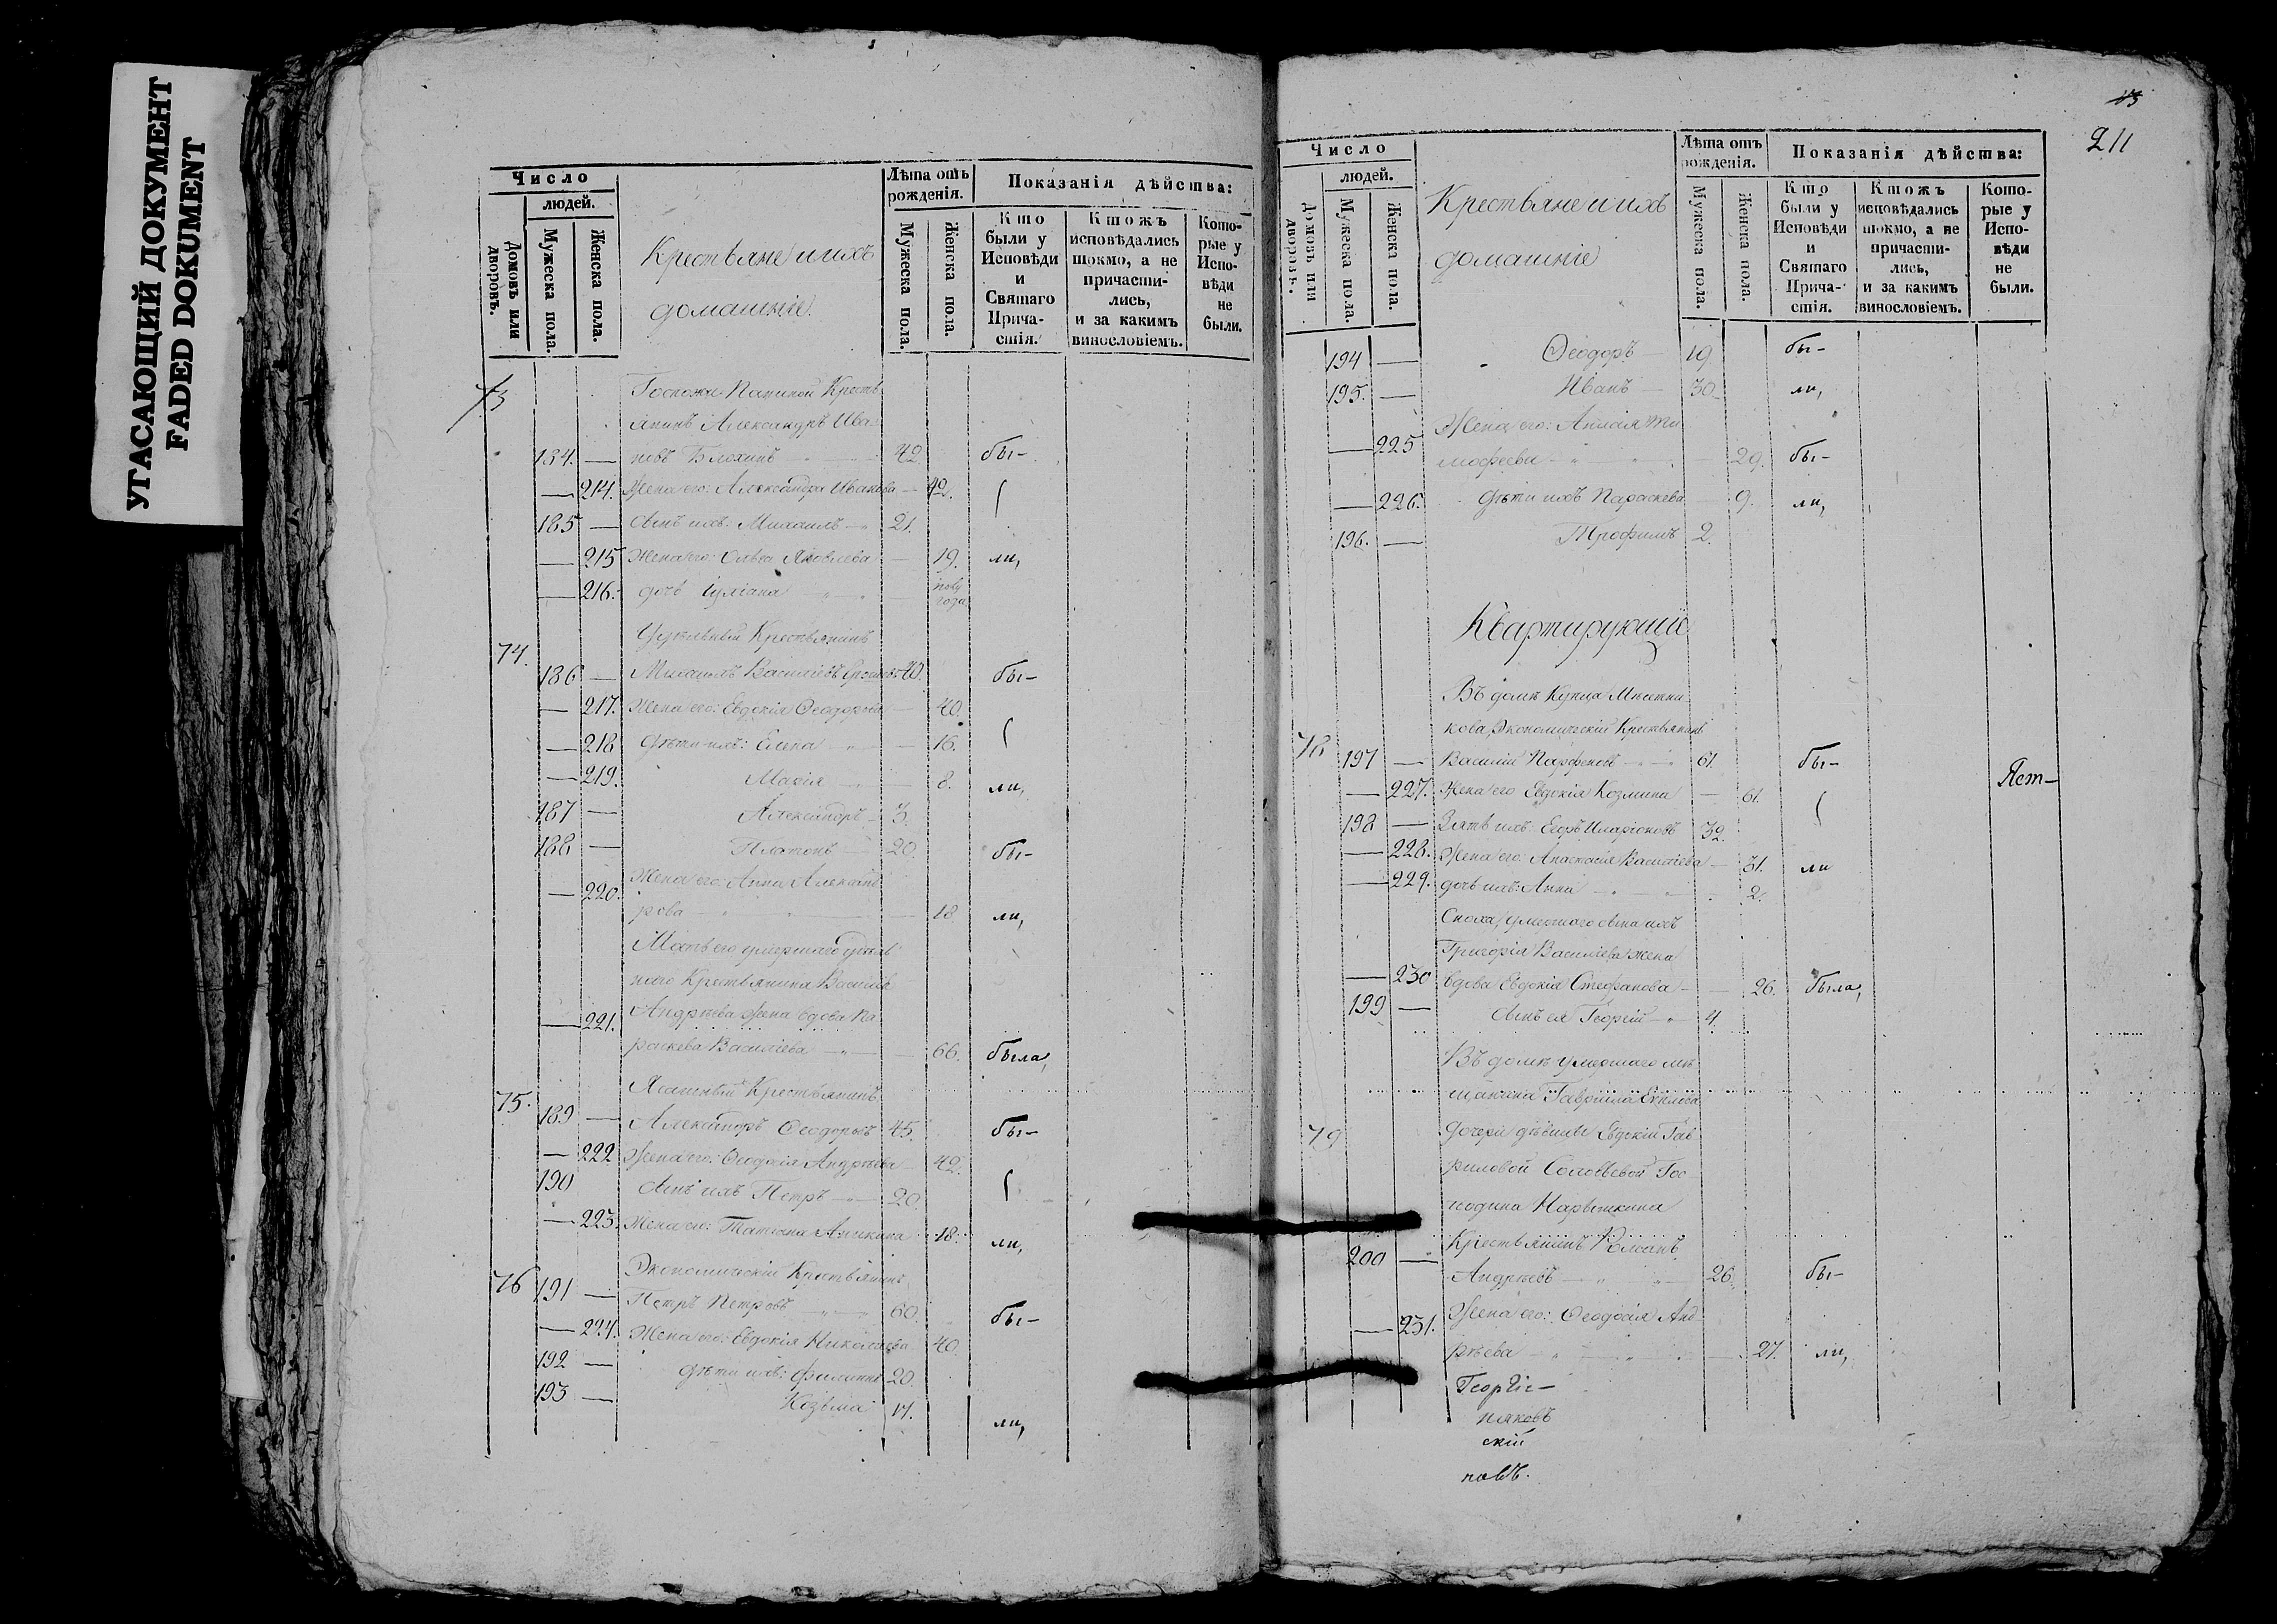 УГАСАЮЩИЙ ДОКУМЕНТ
FADED DOKUMENT
Число
людей.
Домовъ или дворовъ.
Мужеска пола.
Женска пола.
Крестьяне и ихъ
домашніе.
Лѣта отъ рожденія.
Мужеска пола.
Женска пола.
Показанія дѣйства:
Кто были у Исповѣди и Святаго Причастія.
Ктожъ исповѣдались токмо, а не причастились, и за какимъ винословіемъ.
Которые у Исповѣди не были.
73 Госпожи Крестья
янинъ Александръ Ива
184. — новъ Блохинъ 42 бы-
— 214. Жена его: Александра Иванова — 42.
185 — Сынъ ихъ Михаилъ — 21.
— 215 Жена его: Ольга Яковлева — 19. ли,
— 216. дочь Іуліана — полу года
74. Удѣльный Крестьянинъ
186 — Михаилъ Василіевъ 40. бы-
— 217. Жена его: Евдокія Ѳеодорова — 40.
— 218 Дѣти ихъ: Елена — 16.
— 219. Марія — 8. ли,
187 — Александръ — 3.
188 — Платонъ — 20. бы-
Жена его: Анна Александ
— 220. рова — 18. ли,
Мать его умершаго удѣль
наго Крестьянина Василія
— 221. Андреева жена вдова Па
раскева Василіева — 66. была,
75. Ясашный Крестьянинъ
189 — Александръ Ѳеодоровъ 45. бы-
— 222 Жена его: Ѳеодосія Андреева — 42.
190 Сынъ ихъ Петръ — 20.
— 223. Жена его: Татіана Аникина 18. ли,
76 Экономическій Крестьянинъ
191 — Петръ Петровъ — 60. бы-
— 224. Жена его: Евдокія Николаева 40.
192 — Дѣти ихъ: Филиппъ 20.
193 — Козьма 17. ли,
13
211
Число
людей.
Домовъ или дворовъ.
Мужеска пола.
Женска пола.
Крестьяне и ихъ
домашніе
Лѣта отъ рожденія.
Мужеска пола.
Женска пола.
Показанія дѣйства:
Кто были у Исповѣди и Святаго Причастія.
Ктожъ исповѣдались токмо, а не причастились, и за какимъ винословіемъ.
Которые у Исповѣди не были.
194 — Ѳеодоръ — 19 бы-
195. — Иванъ — 30 ли,
Жена его: Ти
— 225 мофеева — 29. бы-
— 226. Дѣти ихъ Параскева — 9. ли,
196. — Трофимъ 2.
Квартирующіе
Въ домѣ Купца Мясни
кова, Экономическій Крестьянинъ
78 197 — Василій Парфеновъ — 61. бы-
Яст-
— 227. Жена его Евдокія Козмина — 61.
198 — Зять ихъ: Егоръ Иларіоновъ 32.
— 228. Жена его: Анастасія Василіева — 31. ли
— 229. дочь ихъ: Анна — 2.
Сноха, умершаго сына ихъ
Григорія Василіева жена
— 230 вдова Евдокія Стефанова — 26. была,
199 — Сынъ ея Георгій — 4.
Въ домѣ умершаго мѣ
щанина Гавріила
79 дочери дѣвицы Евдокіи Гав
риловой Соловьевой Гос
подина Нарышкина
200 — Крестьянинъ
Андреевъ — 26. бы-
Жена его: Ѳеодосія Анд
— 231. реева — 27. ли,
Георгіе-
скій
повъ.